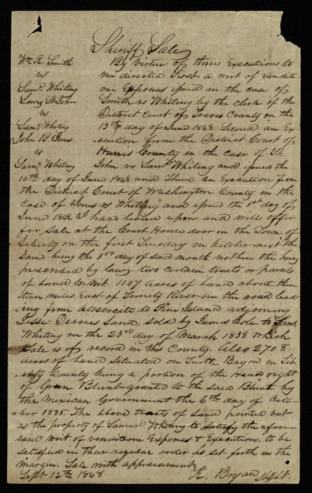 Sheriff Sale
Wm R Smith
vs
Saml Whiting
By virtue of three Executions to
me directed First a writ of vendition
Exponas issued in the case of
Smith vs Whiting by the clerk of the
District Court of County on the
13th day of June 1848. Second an Ex-
ecution from the District Court of
Harris County in the case of St
John vs Saml Whiting and issued the
St John
vs
Saml Whiting
John B Jones
vs
Saml Whiting
10th day of June 1848 and Third an Execution from
the District Court of Washington County in the
case of Jones vs Whiting and issued the 1st day of
June 1848. I have levied upon and will offer
for sale at the Court House door in the Town of
Liberty on the first Tuesday in October next the
same being the 3rd day of said month within the hours
prescribed by law, two certain tracts or parcels
of Land to wit 1107 acres of Land about
miles East of Trinity River on the road lead-
ing from Atascosito to Pine Island adjoining
Jesse Devors Land, sold by James Cole to Saml
Whiting on the 23rd day of March 1838 which
Sale is of record in this County. Also 2708
acres of Land situated on Turtle Bayou in Lib-
erty County being a portion of the Head right
of Blunt granted to the said Blunt by
the Mexican Government the 6th day of Octo-
ber 1835. The above tracts of Land pointed out
as the property of Samuel Whiting to satisfy the afore-
said writ of venditioni Exponas & Executions, to be
satisfied in their regular order as set forth in the
margin. Sale with appraisement
Sept 12th 1848
K. Bryan Shff